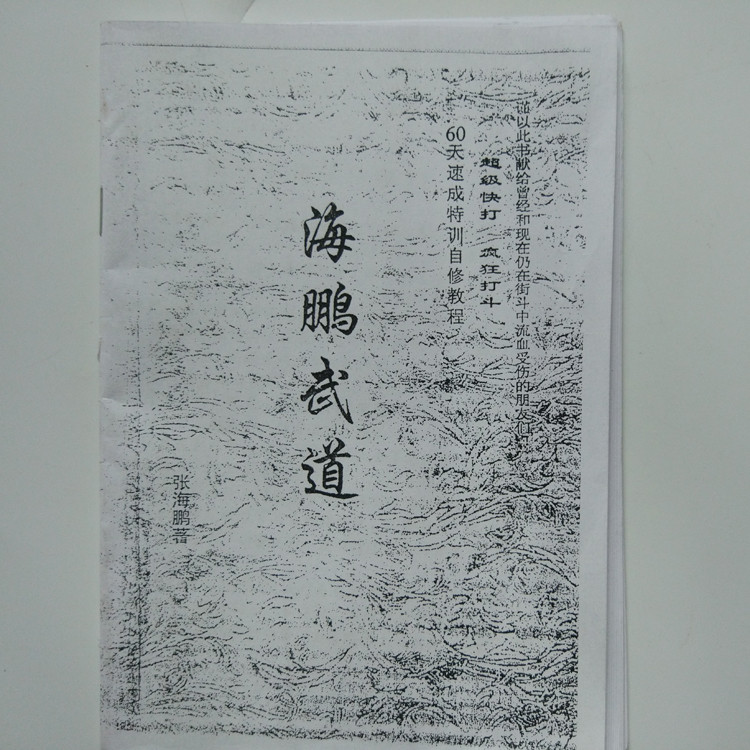 谨以此书献给曾经和现在仍在街斗中流血受伤的朋友们
超级快打 疯狂打斗
60天速成特训自修教程
海鹏武道
张海鹏著